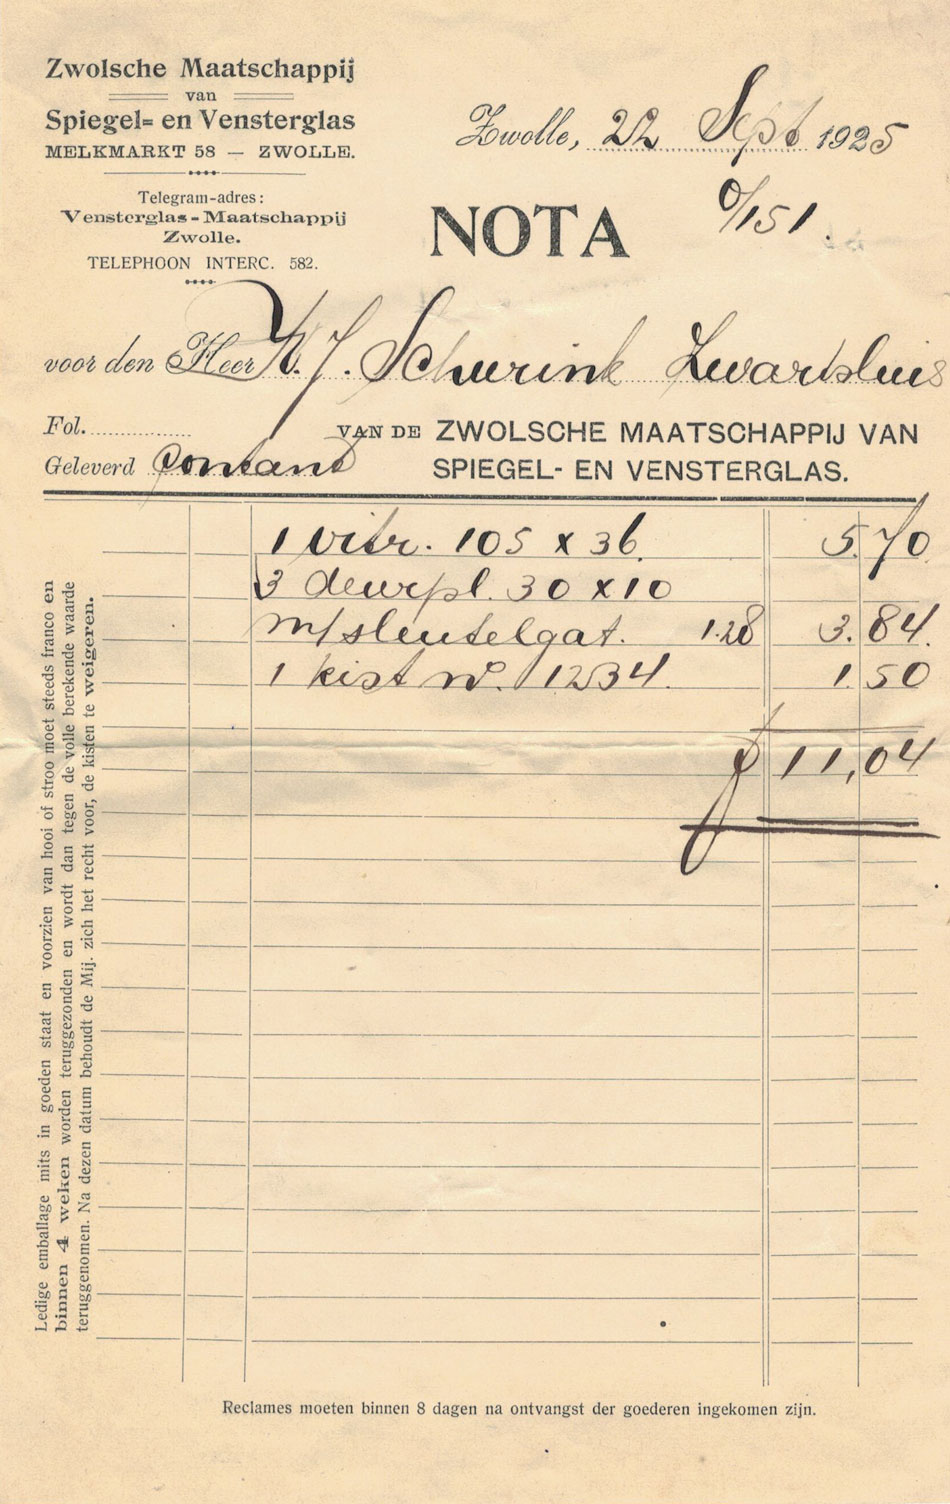 Zwolsche Maatschappij
van
Spiegel= en Vensterglas
MELKMARKT 58 — ZWOLLE.
Telegram-adres:
Vensterglas-Maatschappij
Zwolle.
TELEPHOON INTERC. 582.
Zwolle, 22 Sept 1925
NOTA
0/151.
voor den Heer J. Schurink Zwartsluis
Fol.
Geleverd contant
VAN DE ZWOLSCHE MAATSCHAPPIJ VAN
SPIEGEL- EN VENSTERGLAS.
1 vitr. 105 x 36. 5.70
3 deurpl. 30 x 10
m/sleutelgat. 1.28 3.84
1 kist no. 1234. 1.50
f 11,04
Ledige emballage mits in goeden staat en voorzien van hooi of stroo moet steeds franco en
binnen 4 weken worden teruggezonden en wordt dan tegen de volle berekende waarde
teruggenomen. Na dezen datum behoudt de Mij. zich het recht voor, de kisten te weigeren.
Reclames moeten binnen 8 dagen na ontvangst der goederen ingekomen zijn.